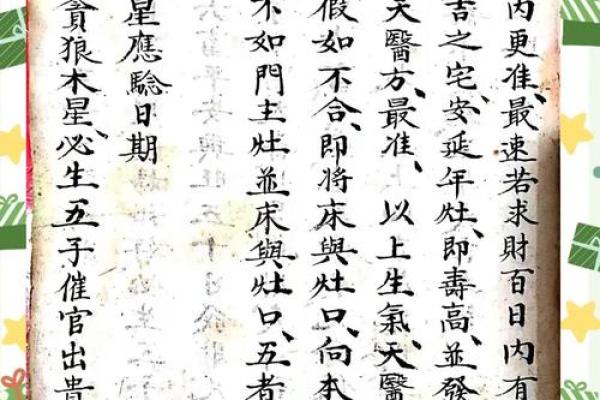 內更准、最速若求財百日內有
吉之宅、安延年灶、即壽高、並發
天醫方、最准、以上生氣、天醫
假如不合、即將床與灶口、向本
不如門主灶並床與灶口、五者
星應驗日期
貪狼木星、必生五子催官出貴